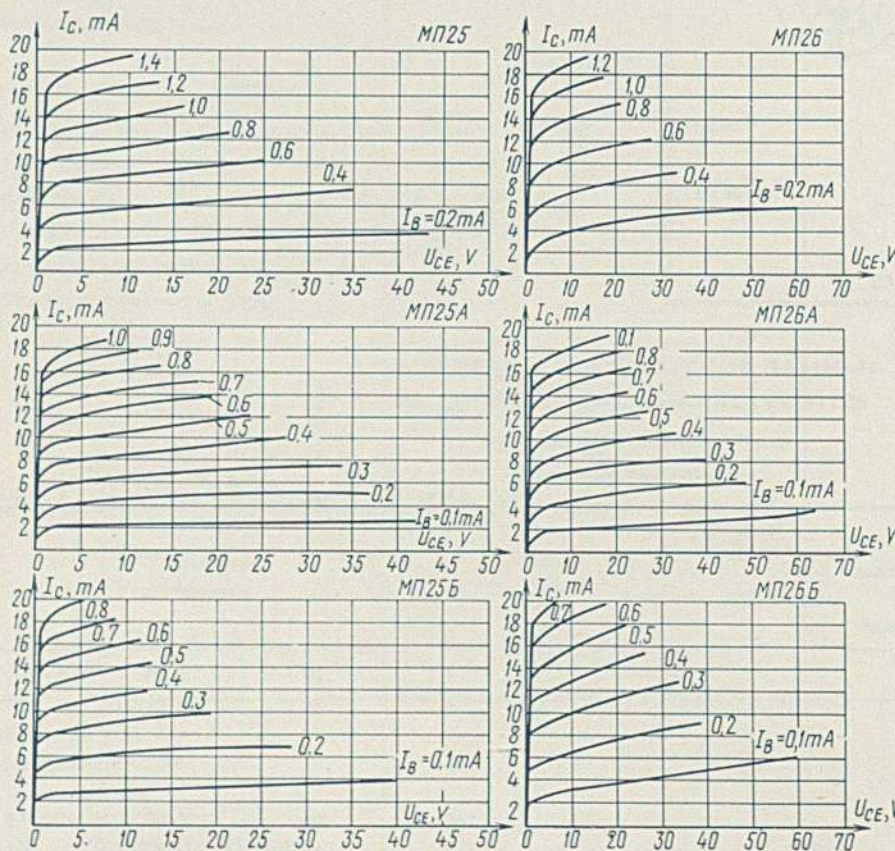 I_C, mA МП25
20
18
16
14
12
10
8
6
4
2
1,4
1,2
1,0
0,8
0,6
0,4
I_B=0,2mA
U_CE, V
0 5 10 15 20 25 30 35 40 45 50
I_C, mA МП26
20
18
16
14
12
10
8
6
4
2
1,2
1,0
0,8
0,6
0,4
I_B=0,2mA
U_CE, V
0 10 20 30 40 50 60 70
I_C, mA МП25А
20
18
16
14
12
10
8
6
4
2
1,0 0,9
0,8
0,7
0,6
0,5
0,4
0,3
0,2
I_B=0,1mA
U_CE, V
0 5 10 15 20 25 30 35 40 45 50
I_C, mA МП26А
20
18
16
14
12
10
8
6
4
2
0,1
0,8
0,7
0,6
0,5
0,4
0,3
0,2
I_B=0,1mA
U_CE, V
0 10 20 30 40 50 60 70
I_C, mA МП25Б
20
18
16
14
12
10
8
6
4
2
0,8
0,7 0,6
0,5
0,4
0,3
0,2
I_B=0,1mA
U_CE, V
0 5 10 15 20 25 30 35 40 45 50
I_C, mA МП26Б
20
18
16
14
12
10
8
6
4
2
0,7 0,6
0,5
0,4
0,3
0,2
I_B=0,1mA
U_CE, V
0 10 20 30 40 50 60 70